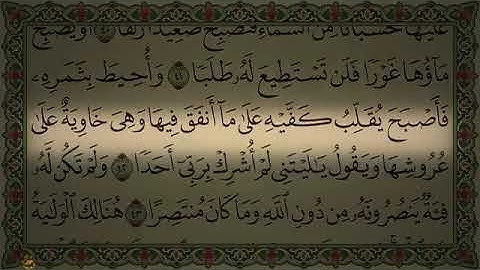 عَلَيْهَا حُسْبَانًا مِّنَ ٱلسَّمَآءِ فَتُصْبِحَ صَعِيدًا زَلَقًا ٤٠ أَوْ يُصْبِحَ
مَآؤُهَا غَوْرًا فَلَن تَسْتَطِيعَ لَهُۥ طَلَبًا ٤١ وَأُحِيطَ بِثَمَرِهِۦ
فَأَصْبَحَ يُقَلِّبُ كَفَّيْهِ عَلَىٰ مَآ أَنفَقَ فِيهَا وَهِىَ خَاوِيَةٌ عَلَىٰ
عُرُوشِهَا وَيَقُولُ يَٰلَيْتَنِى لَمْ أُشْرِكْ بِرَبِّىٓ أَحَدًا ٤٢ وَلَمْ تَكُن لَّهُۥ
فِئَةٌ يَنصُرُونَهُۥ مِن دُونِ ٱللَّهِ وَمَا كَانَ مُنتَصِرًا ٤٣ هُنَالِكَ ٱلْوَلَٰيَةُ